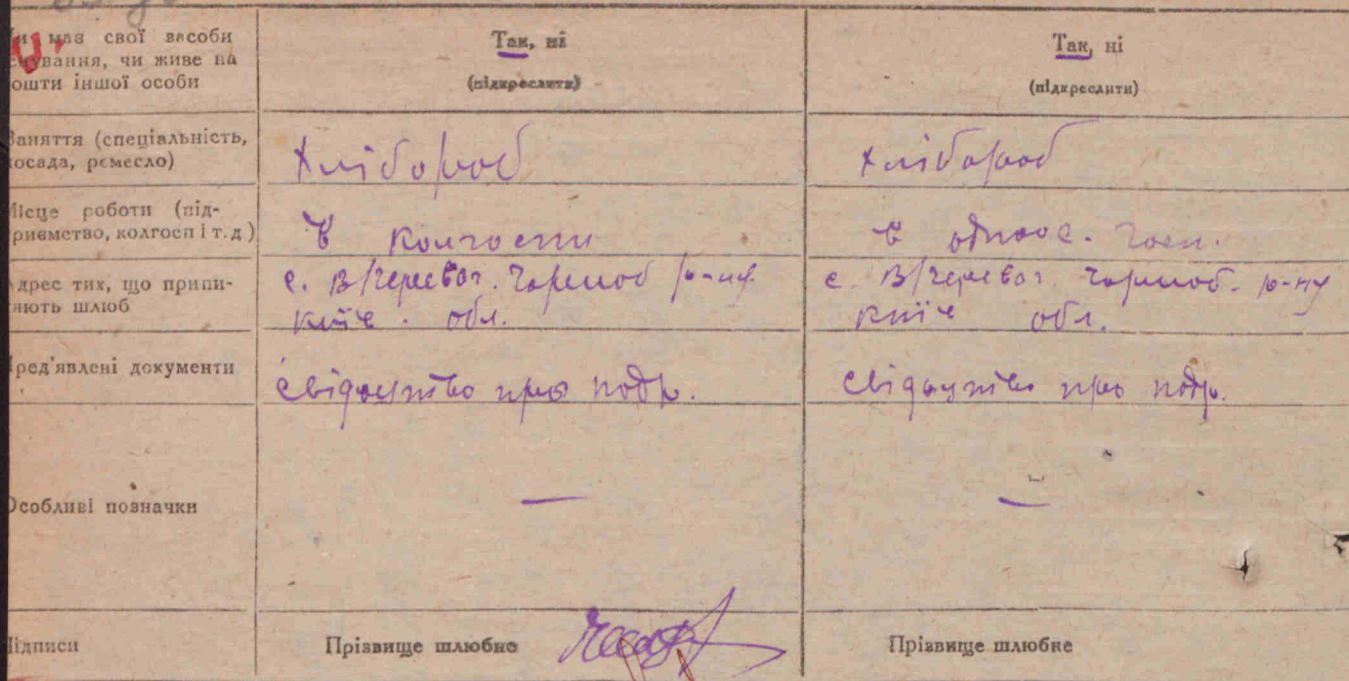 має свої засоби
існування, чи живе на
кошти іншої особи
Так, ні
(підкреслити)
Так, ні
(підкреслити)
Заняття (спеціальність,
посада, ремесло)
Хлібороб
Хлібороб
Місце роботи (під-
приємство, колгосп і т.д)
В колгоспи
в одноос. госп.
Адрес тих, що припи-
няють шлюб
с. В/Черевач. Чорноб р-ну
Київ. обл.
с. В/Черевач. Чорноб. р-ну
Київ обл.
Пред'явлені документи
свідоцтво про подр.
свідоцтво про подр.
Особливі позначки
—
—
Підписи
Прізвище шлюбне
Прізвище шлюбне